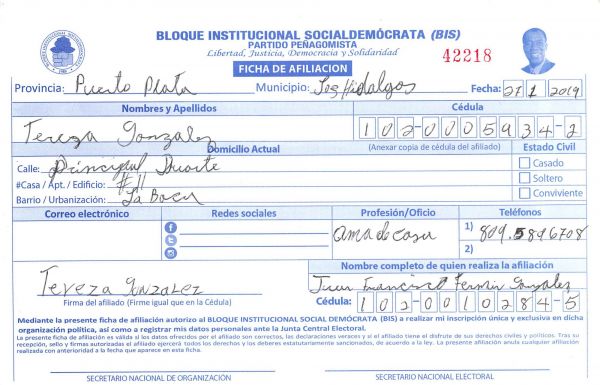 BLOQUE INSTITUCIONAL SOCIALDEMÓCRATA (BIS)
PARTIDO PEÑAGOMISTA
Libertad, Justicia, Democracia y Solidaridad
42218
FICHA DE AFILIACION
Provincia: Puerto Plata Municipio: Los Hidalgos Fecha: 27/1/2019
Nombres y Apellidos Cédula
Tereza Gonzalez 102-0005934-2
Domicilio Actual (Anexar copia de cédula del afiliado) Estado Civil
Calle: Principal Duarte Casado
#Casa / Apt. / Edificio: #11 Soltero
Barrio / Urbanización: La Boca Conviviente
Correo electrónico Redes sociales Profesión/Oficio Teléfonos
ama de casa 1) 809.5896708
2)
Tereza Gonzalez
Firma del afiliado (Firme igual que en la Cédula)
Nombre completo de quien realiza la afiliación
Juan Francisco Fermin Gonzalez
Cédula: 102-0010284-5
Mediante la presente ficha de afiliación autorizo al BLOQUE INSTITUCIONAL SOCIAL DEMÓCRATA (BIS) a realizar mi inscripción única y exclusiva en dicha
organización política, así como a registrar mis datos personales ante la Junta Central Electoral.
La presente ficha de afiliación es válida si los datos ofrecidos por el afiliado son correctos, las declaraciones verces y si el afiliado tiene el disfrute de sus derechos civiles y políticos. Tras su
recepción, sello y firmas autorizadas el afiliado ejercerá todos los derechos y los deberes estatutariamente sancionados, de acuerdo a la ley. La presente afiliación anula cualquier afiliación
realizada con anterioridad a la fecha que aparece en esta ficha.
SECRETARIO NACIONAL DE ORGANIZACIÓN SECRETARIO NACIONAL ELECTORAL